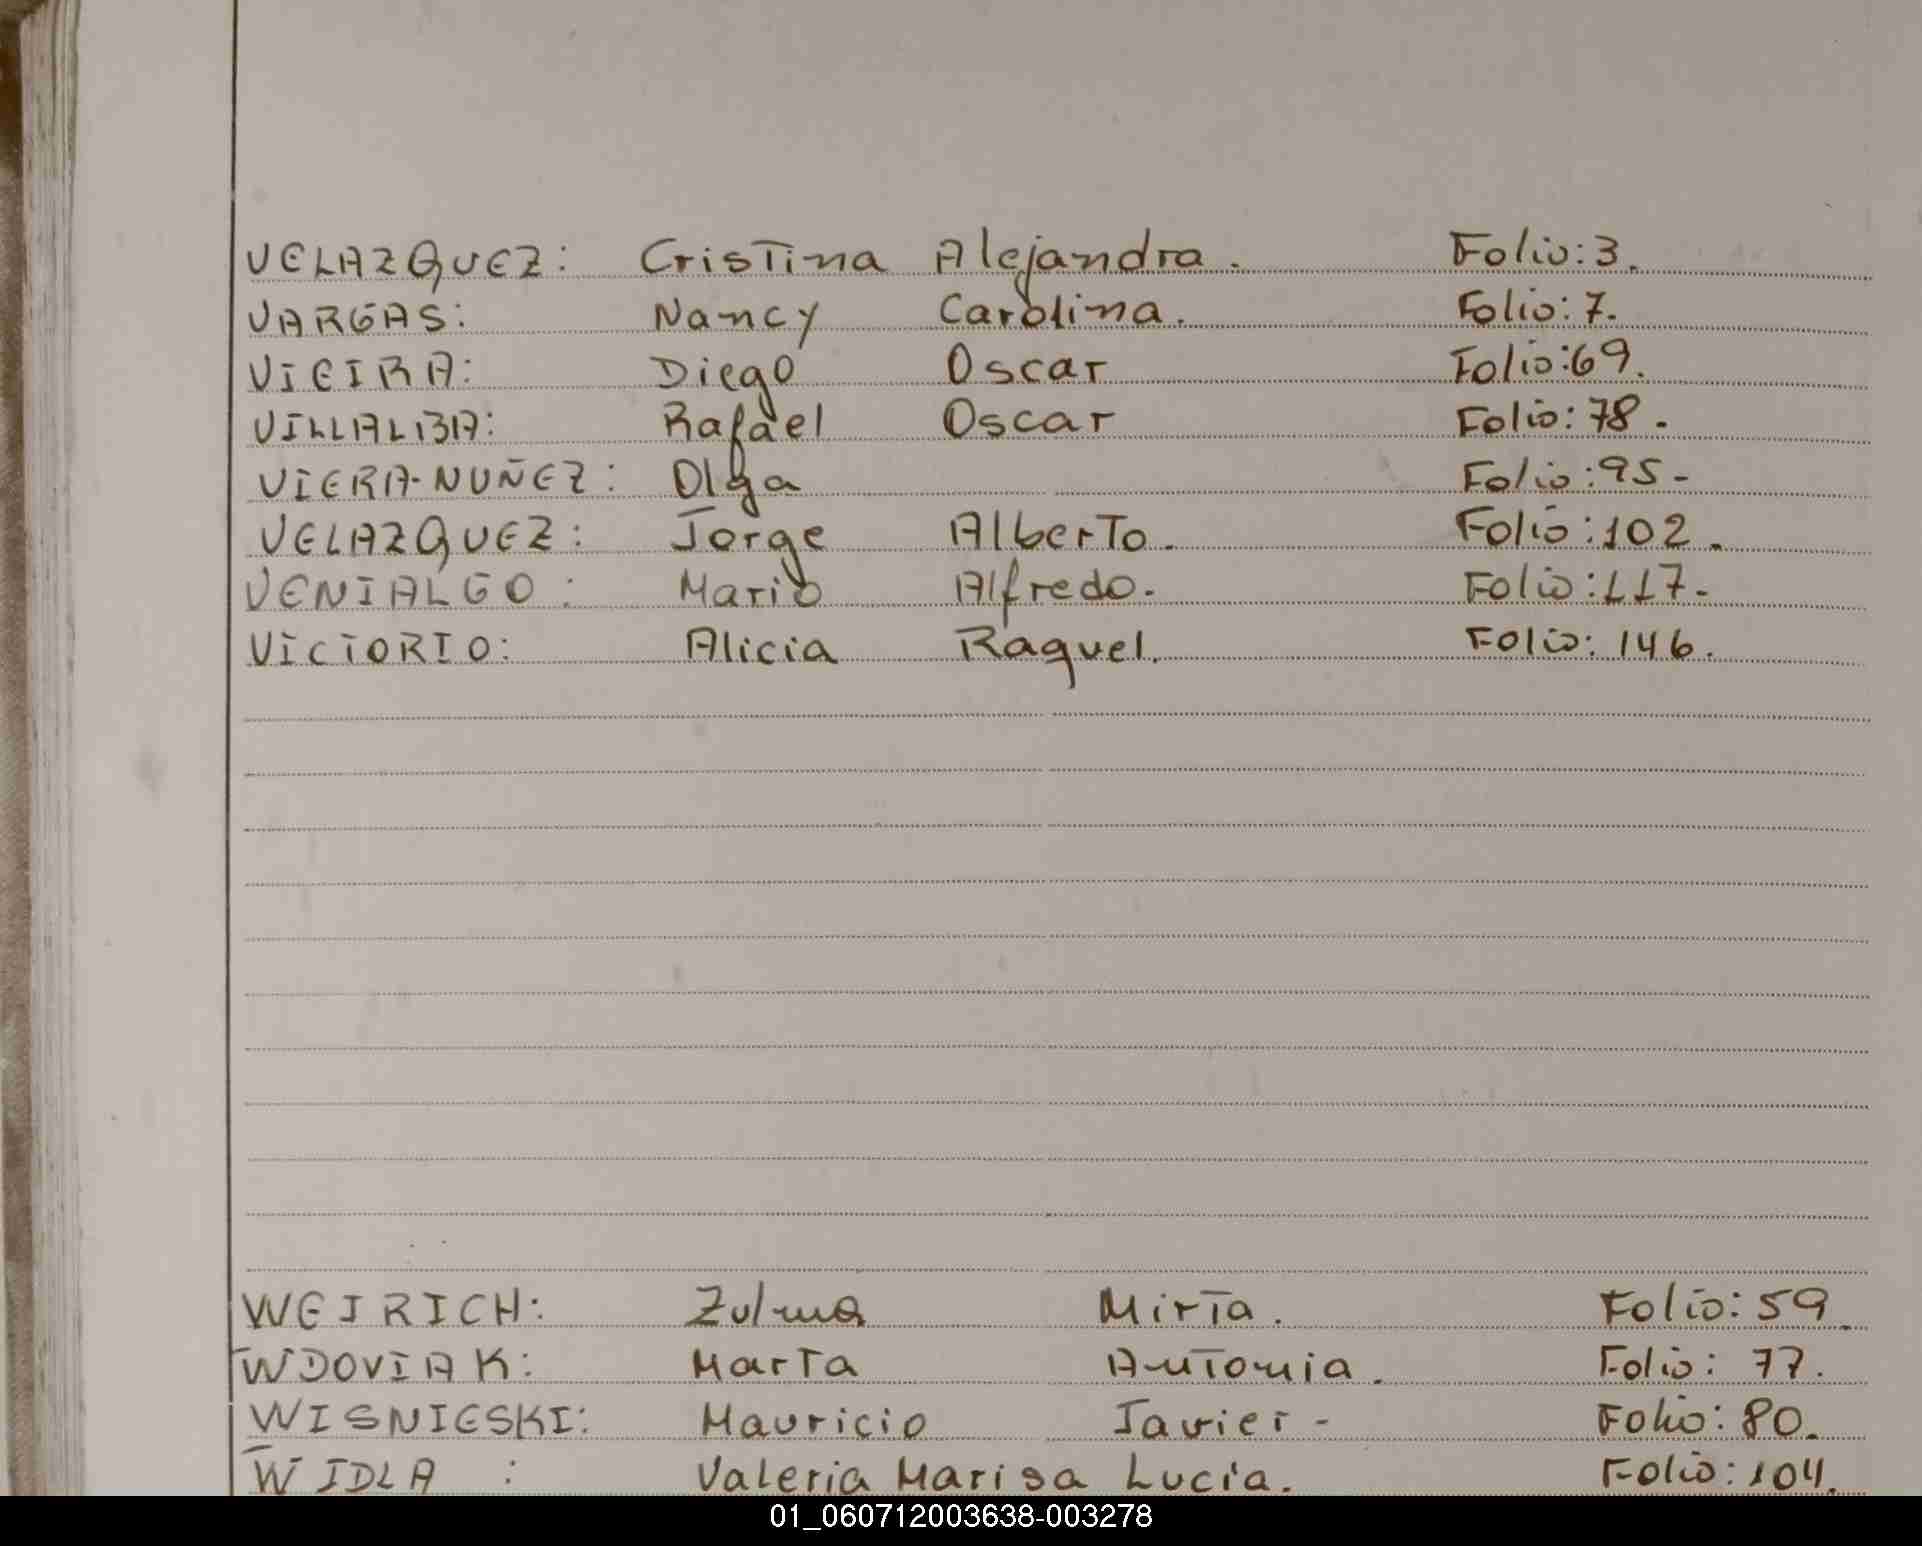 VELAZQUEZ: Cristina Alejandra. Folio: 3.
VARGAS: Nancy Carolina. Folio: 7.
VIEIRA: Diego Oscar Folio: 69.
VILLALBA: Rafael Oscar Folio: 78.
VIERA-NUÑEZ: Olga Folio: 95-
VELAZQUEZ: Jorge Alberto. Folio: 102.
VENIALGO: Mario Alfredo. Folio: 117.
VICTORIO: Alicia Raquel. Folio: 146.
WEIRICH: Zulma Mirta. Folio: 59.
WDOVIAK: Marta Antonia. Folio: 77.
WISNIESKI: Mauricio Javier- Folio: 80.
WIDLA : Valeria Marisa Lucia. Folio: 104.
01_060712003638-003278